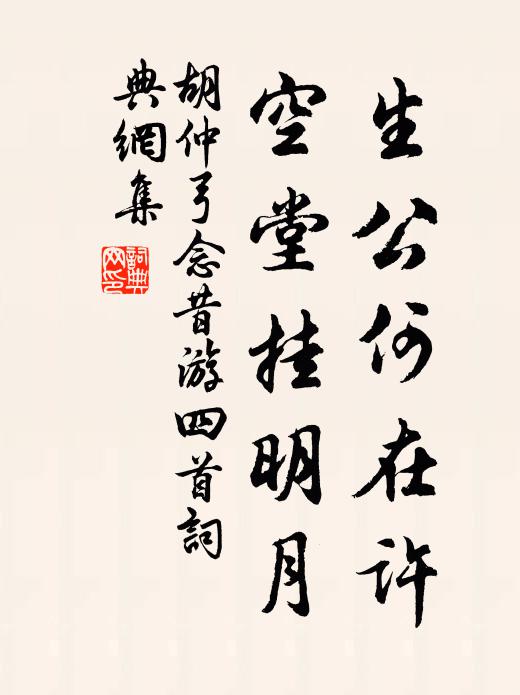 生公何在許
空堂挂明月
胡仲弓念昔游四首詞
典網集
詞典
网印